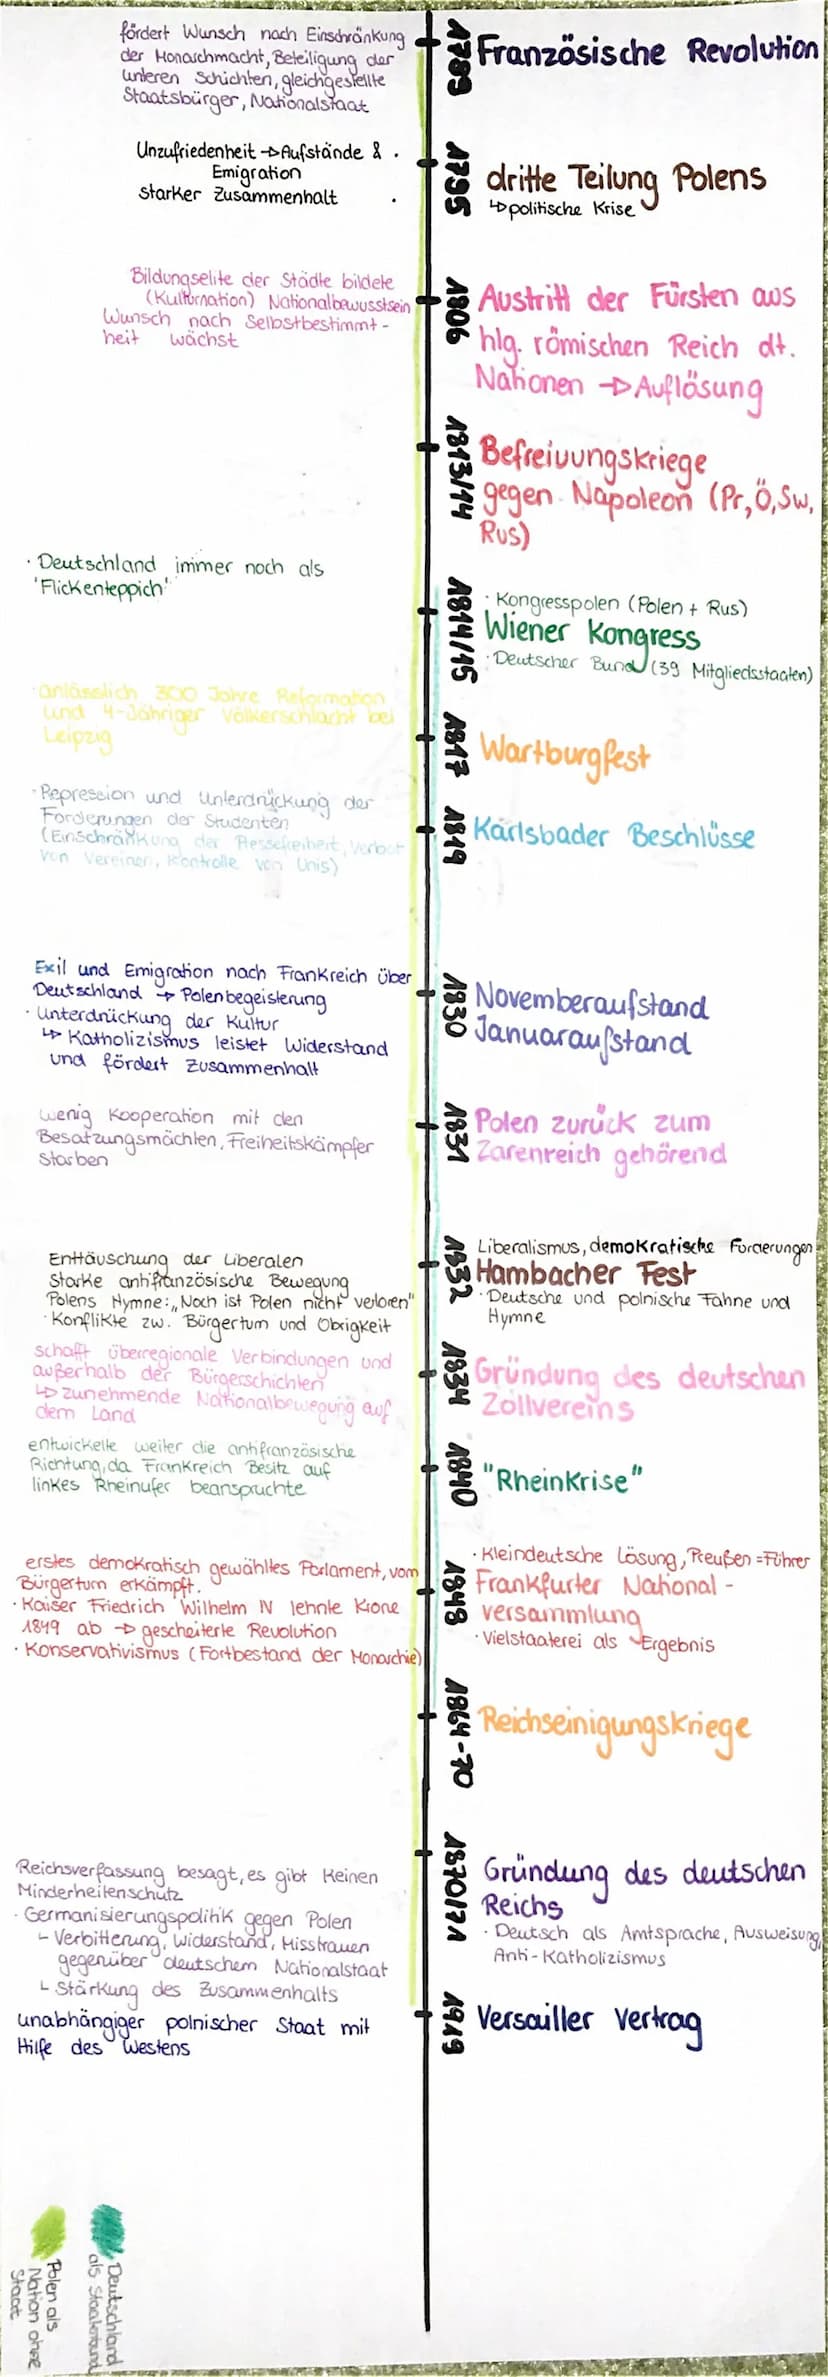 fördert Wunsch nach Einschränkung
der Monarchmacht, Beteiligung der
unteren Schichten, gleichgestellte
Staatsbürger, Nationalstaat
1789
Französische Revolution
Unzufriedenheit → Aufstände & .
Emigration
starker Zusammenhalt .
1795
dritte Teilung Polens
↳ politische Krise
Bildungselite der Städte bildete
(Kulturnation) Nationalbewusstsein
Wunsch nach Selbstbestimmt-
heit wächst
1806
Austritt der Fürsten aus
hlg. römischen Reich dt.
Nationen → Auflösung
1813/14
Befreiuungskriege
gegen Napoleon (Pr, Ö, Sw,
Rus)
· Deutschland immer noch als
'Flickenteppich'
1814/15
· Kongresspolen (Polen + Rus)
Wiener Kongress
· Deutscher Bund (39 Mitgliedsstaaten)
· anlässlich 300 Jahre Reformation
und 4-Jähriger Völkerschlacht bei
Leipzig
1817
Wartburgfest
· Repression und Unterdrückung der
Forderungen der Studenten
(Einschränkung der Pressefreiheit, Verbot
von Vereinen, Kontrolle von Unis)
1819
Karlsbader Beschlüsse
Exil und Emigration nach Frankreich über
Deutschland → Polenbegeisterung
· Unterdrückung der Kultur
↳ Katholizismus leistet Widerstand
und fördert Zusammenhalt
1830
Novemberaufstand
Januaraufstand
wenig Kooperation mit den
Besatzungsmächten, Freiheitskämpfer
starben
1831
Polen zurück zum
Zarenreich gehörend
Enttäuschung der Liberalen
Starke antifranzösische Bewegung
Polens Hymne: „Noch ist Polen nicht verloren"
· Konflikte zw. Bürgertum und Obrigkeit
1832
Liberalismus, demokratische Forderungen
Hambacher Fest
· Deutsche und polnische Fahne und
Hymne
schafft überregionale Verbindungen und
außerhalb der Bürgerschichten
↳ zunehmende Nationalbewegung auf
dem Land
1834
Gründung des deutschen
Zollvereins
entwickelte weiter die antifranzösische
Richtung, da Frankreich Besitz auf
linkes Rheinufer beanspruchte
1840
"Rheinkrise"
erstes demokratisch gewähltes Parlament, vom
Bürgertum erkämpft.
· Kaiser Friedrich Wilhelm IV lehnte Krone
1849 ab → gescheiterte Revolution
· Konservativismus (Fortbestand der Monarchie)
1848
· Kleindeutsche Lösung, Preußen = Führer
Frankfurter National-
versammlung
· Vielstaaterei als Ergebnis
1864-70
Reichseinigungskriege
Reichsverfassung besagt, es gibt keinen
Minderheitenschutz
· Germanisierungspolitik gegen Polen
└ Verbitterung, Widerstand, Misstrauen
gegenüber deutschem Nationalstaat
└ Stärkung des Zusammenhalts
1870/71
Gründung des deutschen
Reichs
· Deutsch als Amtsprache, Ausweisung,
Anti-Katholizismus
unabhängiger polnischer Staat mit
Hilfe des Westens
1919
Versailler Vertrag
Deutschland
als Staatenbund
Polen als
Nation ohne
Staat